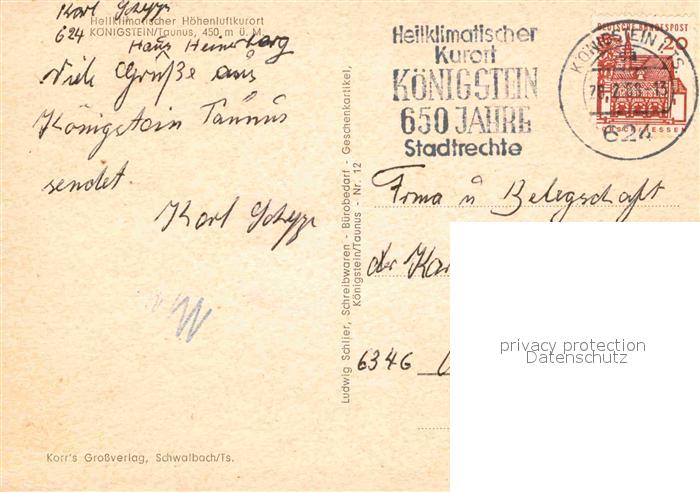 Karl
Heilklimatischer Höhenluftkurort
624 KÖNIGSTEIN/Taunus, 450 m ü. M.
Haus
Viele Grüße aus
Königstein Taunus
sendet
Karl
Korr's Großverlag, Schwalbach/Ts.
Ludwig Schlier, Schreibwaren - Bürobedarf - Geschenkartikel,
Königstein/Taunus - Nr. 12
Heilklimatischer
Kurort
KÖNIGSTEIN
650 JAHRE
Stadtrechte
DEUTSCHE BUNDESPOST
20
KÖNIGSTEIN
624
Firma u Belegschaft
der
6346
privacy protection
Datenschutz